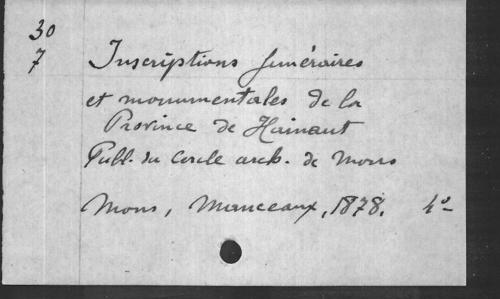 30
7 Inscriptions funéraires
et monumentales de la
Province de Hainaut
Publ. du Cercle arch. de Mons
Mons, Manceaux, 1878. 4º